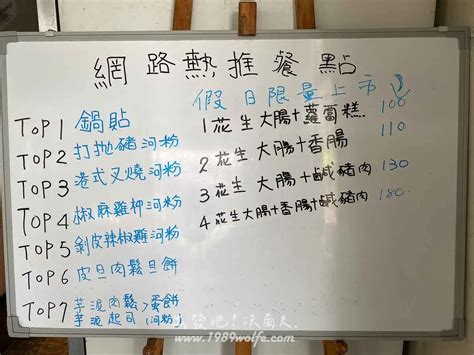 網路熱推餐點
假日限量上市
TOP1 鍋貼
TOP2 打拋豬河粉
TOP3 港式叉燒河粉
TOP4 椒麻雞柳河粉
TOP5 剝皮辣椒雞河粉
TOP6 皮旦肉鬆旦餅
TOP7 芋泥肉鬆>蛋餅
芋泥起司(河粉)
1 花生大腸+蘿蔔糕 100
2 花生大腸+香腸 110
3 花生大腸+鹹豬肉 130
4 花生大腸+香腸+鹹豬肉 180
www.1989wolfe.com